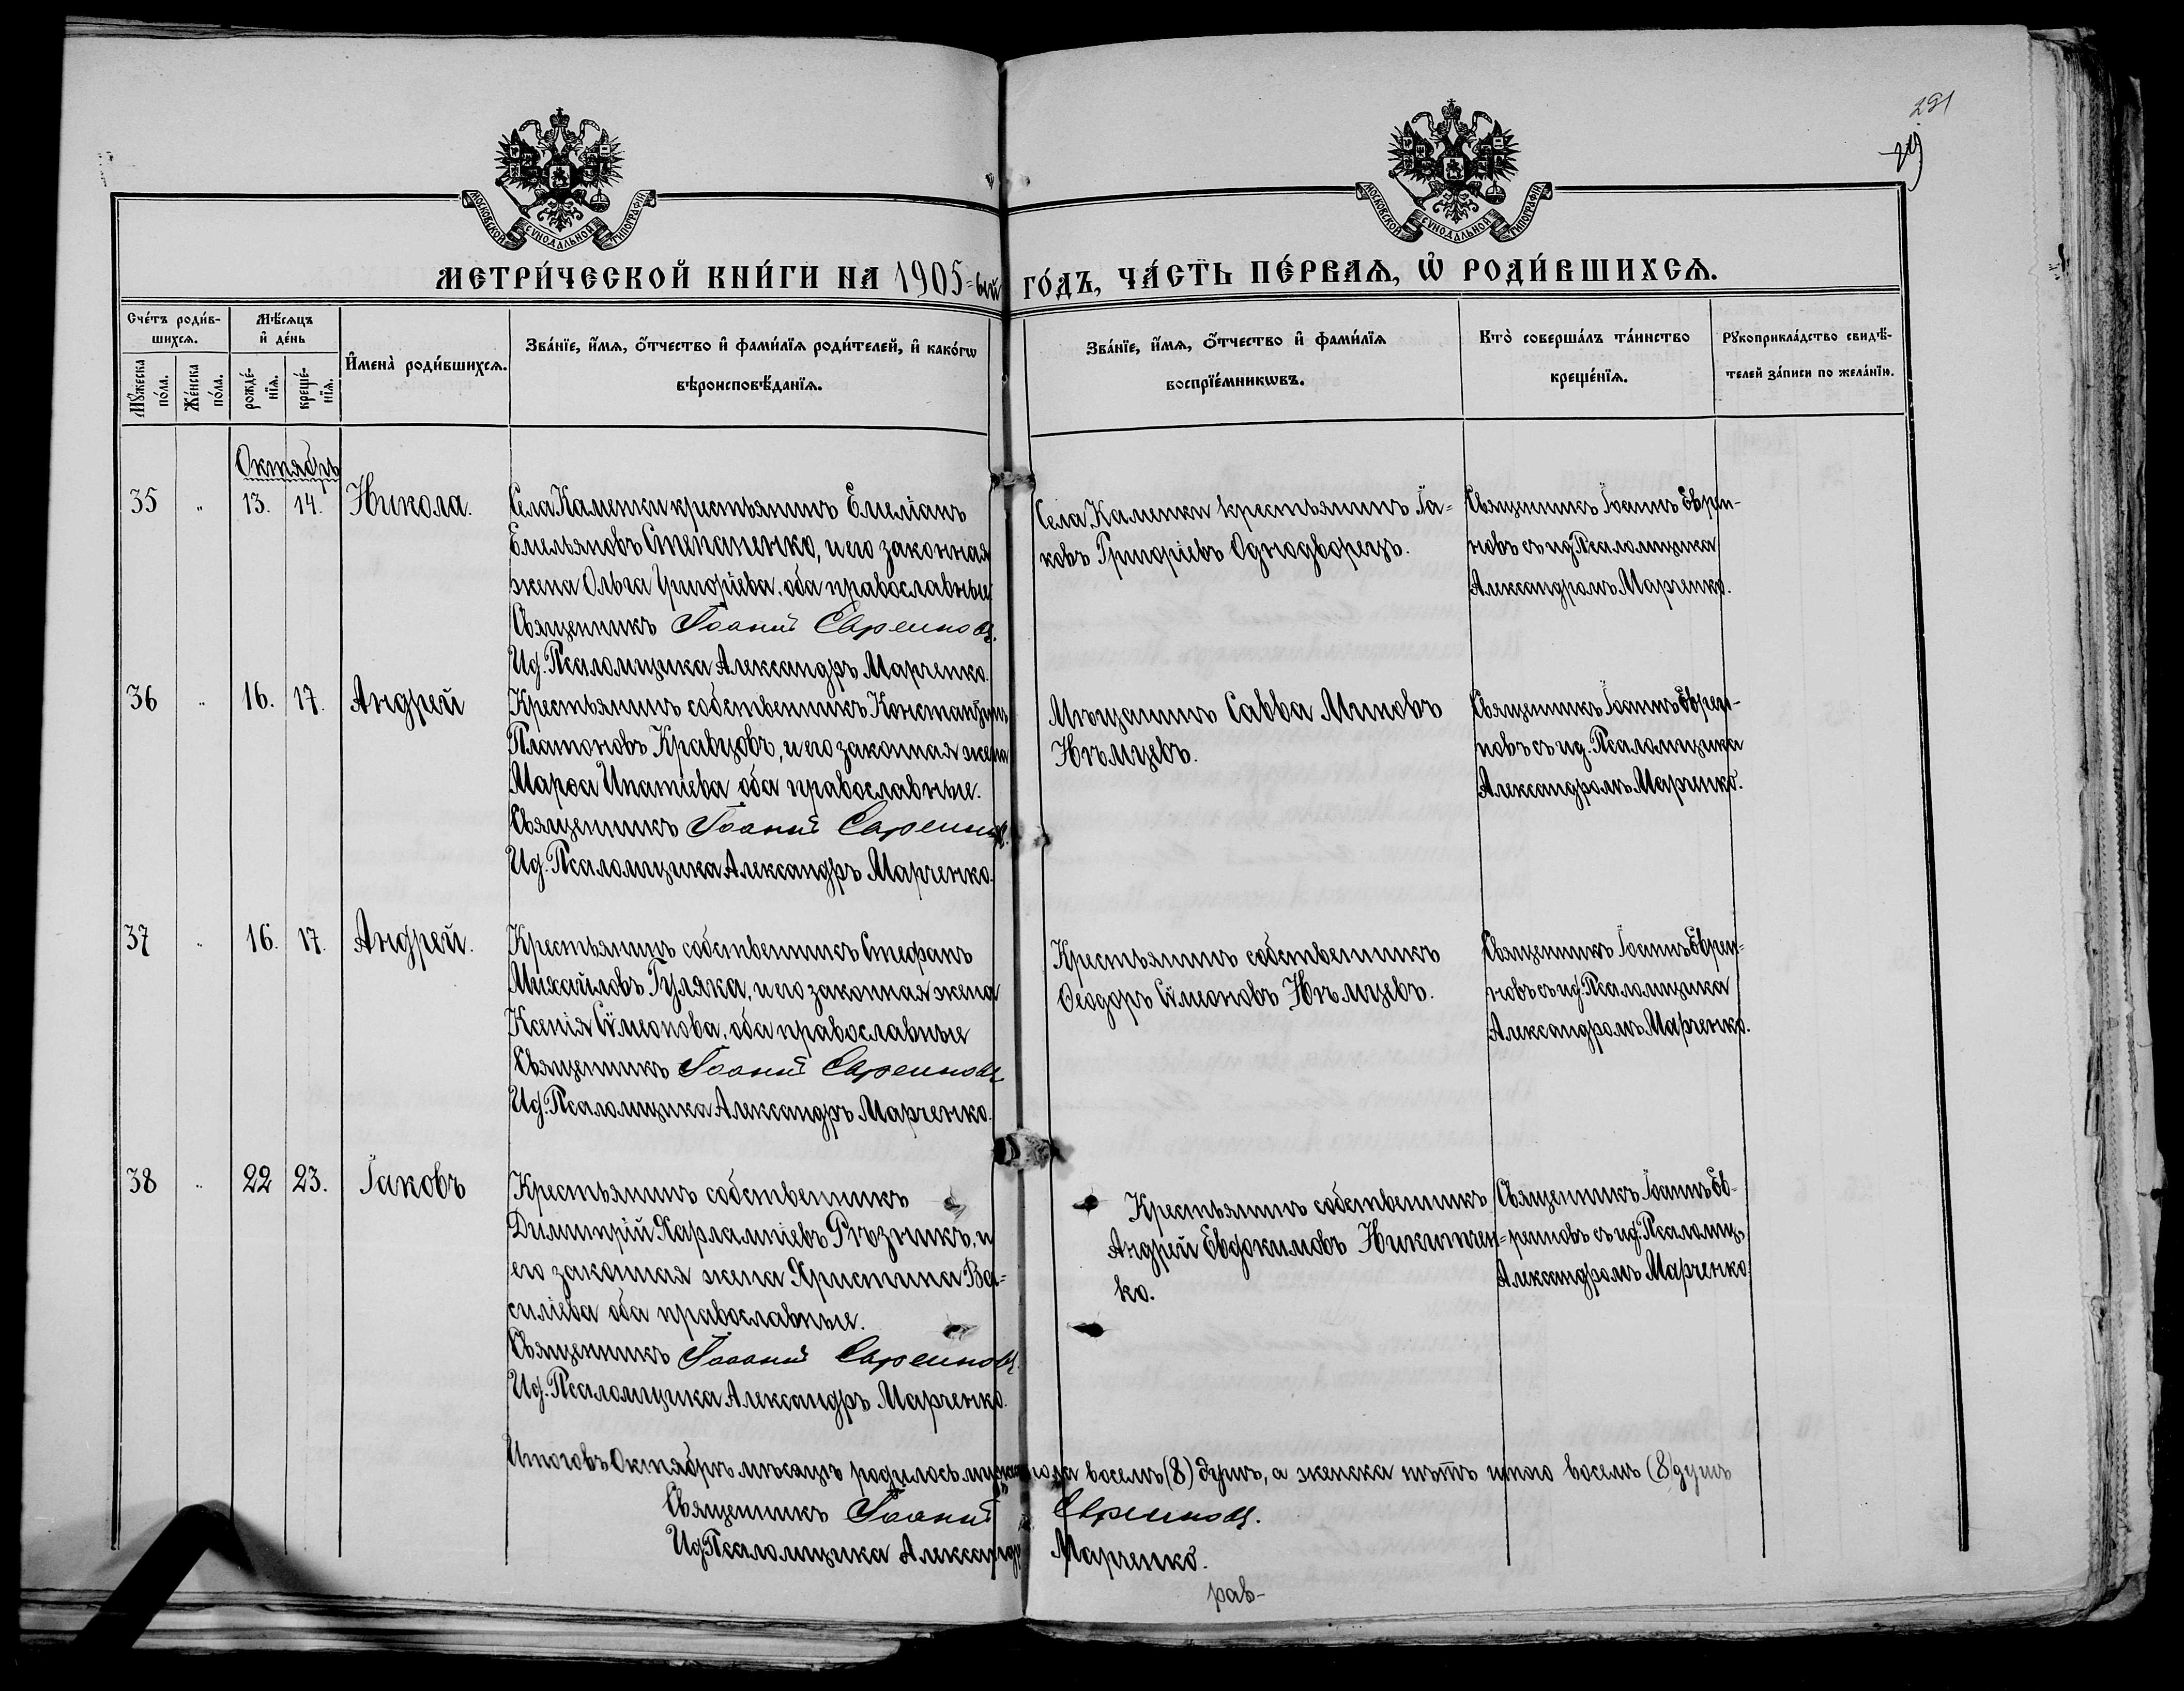 291
МОСКОВСКОЙ СѴНОДАЛЬНОЙ ТИПОГРАФІИ
МОСКОВСКОЙ СѴНОДАЛЬНОЙ ТИПОГРАФІИ
МЕТРИ́ЧЕСКОЙ КНИ́ГИ НА 1905=ый ГО́ДЪ, ЧА́СТЬ ПЕ́РВАѦ, Ѡ҆ РОДИ́ВШИХСѦ.
Сче́тъ роди́в-
шихсѧ.
Мꙋ́жеска по́ла.
Же́нска по́ла.
Мѣ́сѧцъ и҆ де́нь
рожде́-нїѧ.
креще́-нїѧ.
И҆мена̀ роди́вшихсѧ.
Зва́нїе, и҆́мѧ, ѻ҆́тчество и҆ фами́лїѧ роди́телей, и҆ како́гѡ
вѣроисповѣ́данїѧ.
Зва́нїе, и҆́мѧ, ѻ҆́тчество и҆ фами́лїѧ
воспрїе́мникѡвъ.
Кто̀ соверша́лъ та́инство
креще́нїѧ.
Рꙋкоприкла́дство свидѣ́-
телей за́писи по жела́нїю.
Октябрь
35 " 13. 14. Никола.
Села Каменки крестьянинъ Емеліанъ
Емельяновъ Степаненко, и его законная
жена Ольга Григоріева, оба православные
Священникъ Іоаннъ Евреиновъ.
Ид. Псаломщика Александръ Марченко.
Села Каменки крестьянинъ Іа=
ковъ Григоріевъ Однодворецъ.
Священникъ Іоаннъ Евреи-
новъ съ ид. Псаломщика
Александромъ Марченко.
36 " 16. 17. Андрей
Крестьянинъ собственникъ Константинъ
Платоновъ Кравцовъ, и его законная жена
Марѳа Ипатіева оба православные.
Священникъ Іоаннъ Евреиновъ.
Ид. Псаломщика Александръ Марченко.
Мѣщанинъ Савва Миновъ
Нѣмцевъ.
Священникъ Іоаннъ Евреи-
новъ съ ид. Псаломщика
Александромъ Марченко.
37 " 16. 17. Андрей.
Крестьянинъ собственникъ Стефанъ
Михайловъ Гуляка, и его законная жена
Ксенія Сѵмеонова, оба православные
Священникъ Іоаннъ Евреиновъ
Ид. Псаломщика Александръ Марченко.
Крестьянинъ собственникъ
Ѳеодоръ Сѵмеоновъ Нѣмцевъ.
Священникъ Іоаннъ Евреи=
новъ съ ид. Псаломщика
Александромъ Марченко.
38 " 22 23. Іаковъ
Крестьянинъ собственникъ
Димитрій Харлампіевъ Рѣзникъ, и
его законная жена Христина Ва=
силіева оба православные.
Священникъ Іоаннъ Евреиновъ.
Ид. Псаломщика Александръ Марченко.
Крестьянинъ собственникъ
Андрей Евдокимовъ Никитчен=
ко.
Священникъ Іоаннъ Ев-
реиновъ съ ид. Псаломщ.
Александромъ Марченко
Итого въ Октябрѣ мѣсяцѣ родилось муж. пола восемь (8) душъ, а женска нѣтъ итого восемь (8) душъ
Священникъ Іоаннъ Евреиновъ.
Ид. Псаломщика Александръ Марченко.
рав-